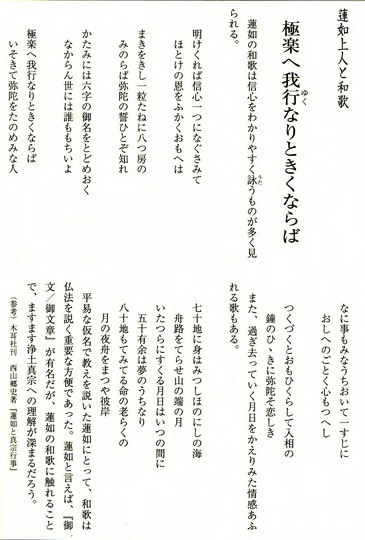 蓮如上人と和歌
極楽へ我行なりときくならば
ゆく
蓮如の和歌は信心をわかりやすく詠うものが多く見
うた
られる。
明けくれば信心一つになぐさみて
ほとけの恩をふかくおもへは
まきをきし一粒たねに八つ房の
みのらば弥陀の誓ひとぞ知れ
かたみには六字の御名をとどめおく
なからん世には誰ももちいよ
極楽へ我行なりときくならば
いそきて弥陀をたのめみな人
なに事もみなうちおいて一すじに
おしへのごとく心もつへし
つくづくとおもひくらして入相の
鐘のひゞきに弥陀そ恋しき
また、過ぎ去っていく月日をかえりみた情感あふ
れる歌もある。
七十地に身はみつしほのにしの海
舟路をてらせ山の端の月
いたつらにすくる月日はいつの間に
五十有余は夢のうちなり
八十地もてみてる命の老らくの
月の夜舟をまつや彼岸
平易な仮名で教えを説いた蓮如にとって、和歌は
仏法を説く重要な方便であった。蓮如と言えば、『御
文/御文章』が有名だが、蓮如の和歌に触れること
で、ますます浄土真宗への理解が深まるだろう。
(参考)木耳社刊 西山郷史著『蓮如と真宗行事』